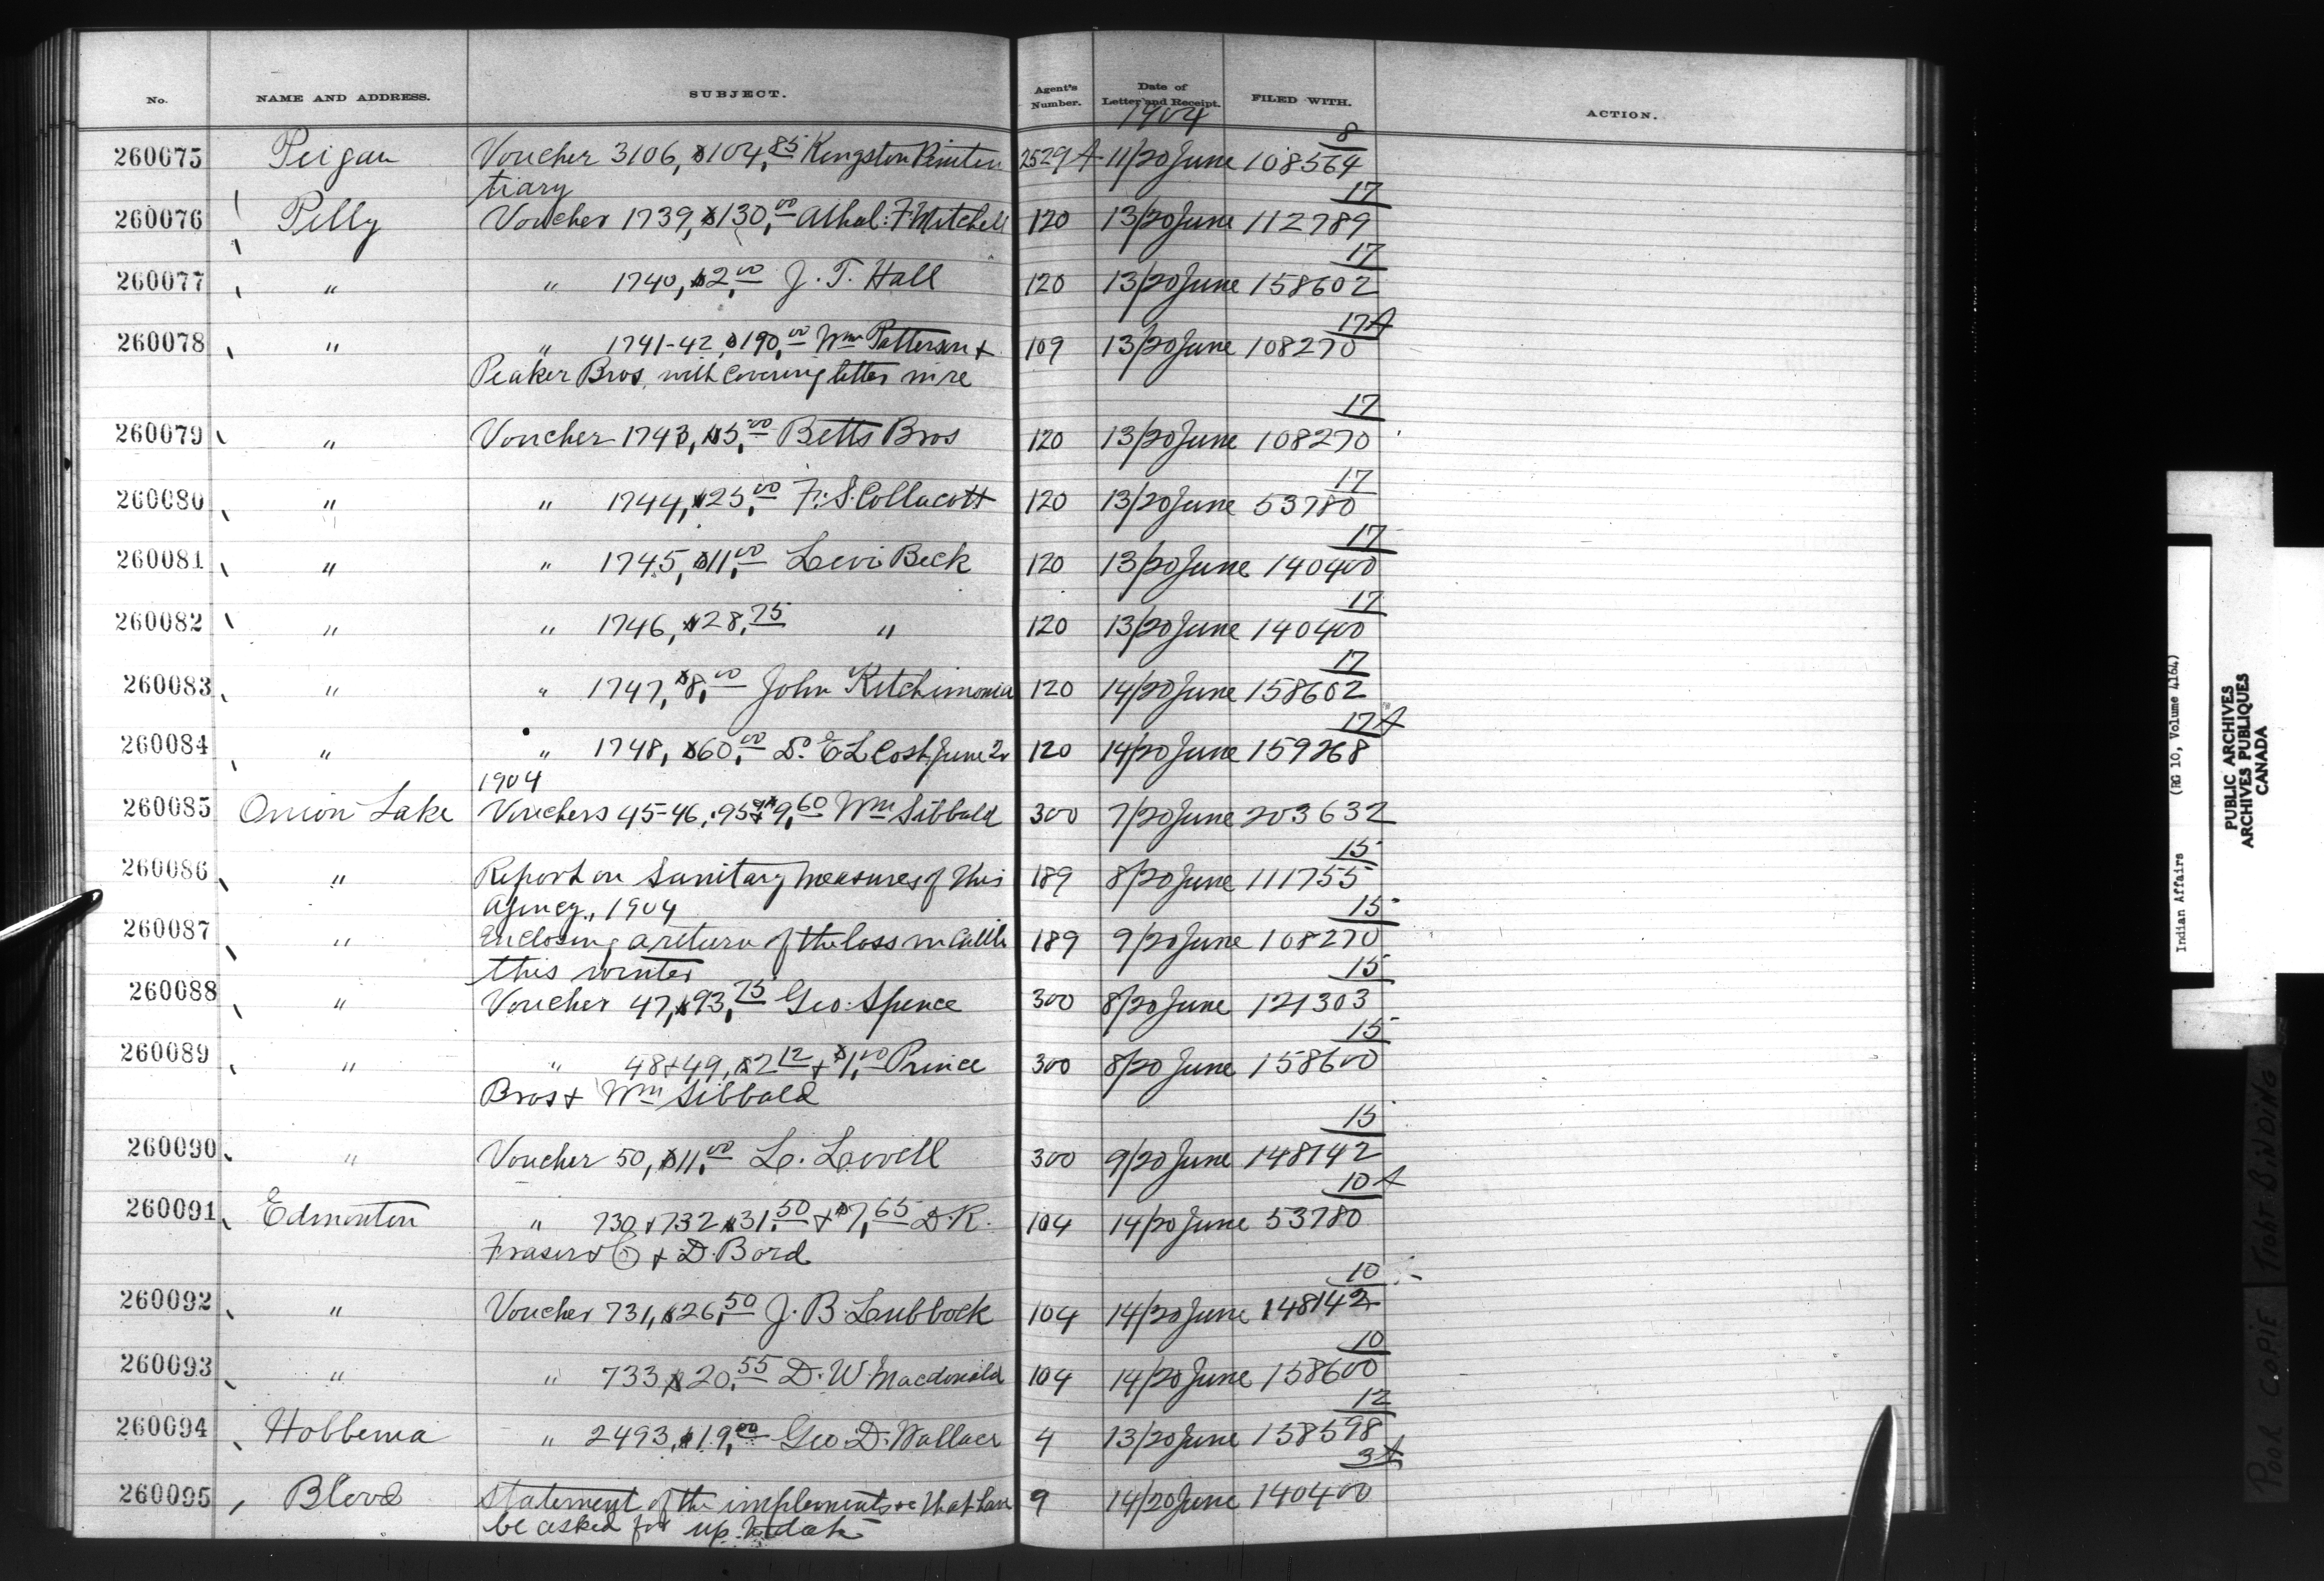 No. NAME AND ADDRESS. SUBJECT. Agent's Number. Date of Letter and Receipt. FILED WITH. ACTION.
1904
8
260075 Peigan Voucher 3106, $104,85 Kingston Peniten 2529 A 11/20 June 108564
tiary
17
260076 Pelly Voucher 1739, $130,00 Athol: F. Mitchell 120 13/20 June 112789
17
260077 " " 1740, $2,00 J. T. Hall 120 13/20 June 158602
17A
260078 " " 1741-42, $190,00 Wm Patterson + 109 13/20 June 108270
Peaker Bros, with covering letter in re
17
260079 " Voucher 1743, $5,00 Betts Bros 120 13/20 June 108270
17
260080 " " 1744, $25,00 F. S. Collacott 120 13/20 June 53780
17
260081 " " 1745, $11,00 Levi Beck 120 13/20 June 140400
17
260082 " " 1746, $28,75 " 120 13/20 June 140400
17
260083 " " 1747, $8,00 John Kitchimonia 120 14/20 June 158602
17A
260084 " " 1748, $60,00 Dr. E L Cash June 120 14/20 June 159268
1904
260085 Onion Lake Vouchers 45-46, .95 + $9,60 Wm Sibbald 300 7/20 June 203632
15
260086 " Report on Sanitary measures of this 189 8/20 June 111755
Agency, 1904
15
260087 " Enclosing a return of the loss in Cattle 189 9/20 June 108270
this winter
15
260088 " Voucher 47, $93,75 Geo. Spence 300 8/20 June 121303
15
260089 " " 48+49, $2,12 + $1,00 Prince 300 8/20 June 158600
Bros + Wm Sibbald
15
260090 " Voucher 50, $11,00 L. Lovell 300 9/20 June 148142
10 A
260091 Edmonton " 730 + 732 $31,50 + $7,65 D. R. 104 14/20 June 53780
Fraser & Co + D. Bord
10
260092 " Voucher 731, $26,50 J. B. Lubbock 104 14/20 June 148142
10
260093 " " 733 $20,55 D. W. Macdonald 104 14/20 June 158600
12
260094 Hobbema " 2493, $19,00 Geo D. Wallace 4 13/20 June 158598
3A
260095 Blood Statement of the implements &c that have 9 14/20 June 140400
be asked for up to date
Indian Affairs (RG 10, Volume 4164)
PUBLIC ARCHIVES
ARCHIVES PUBLIQUES
CANADA
POOR COPIE TIGHT BINDING